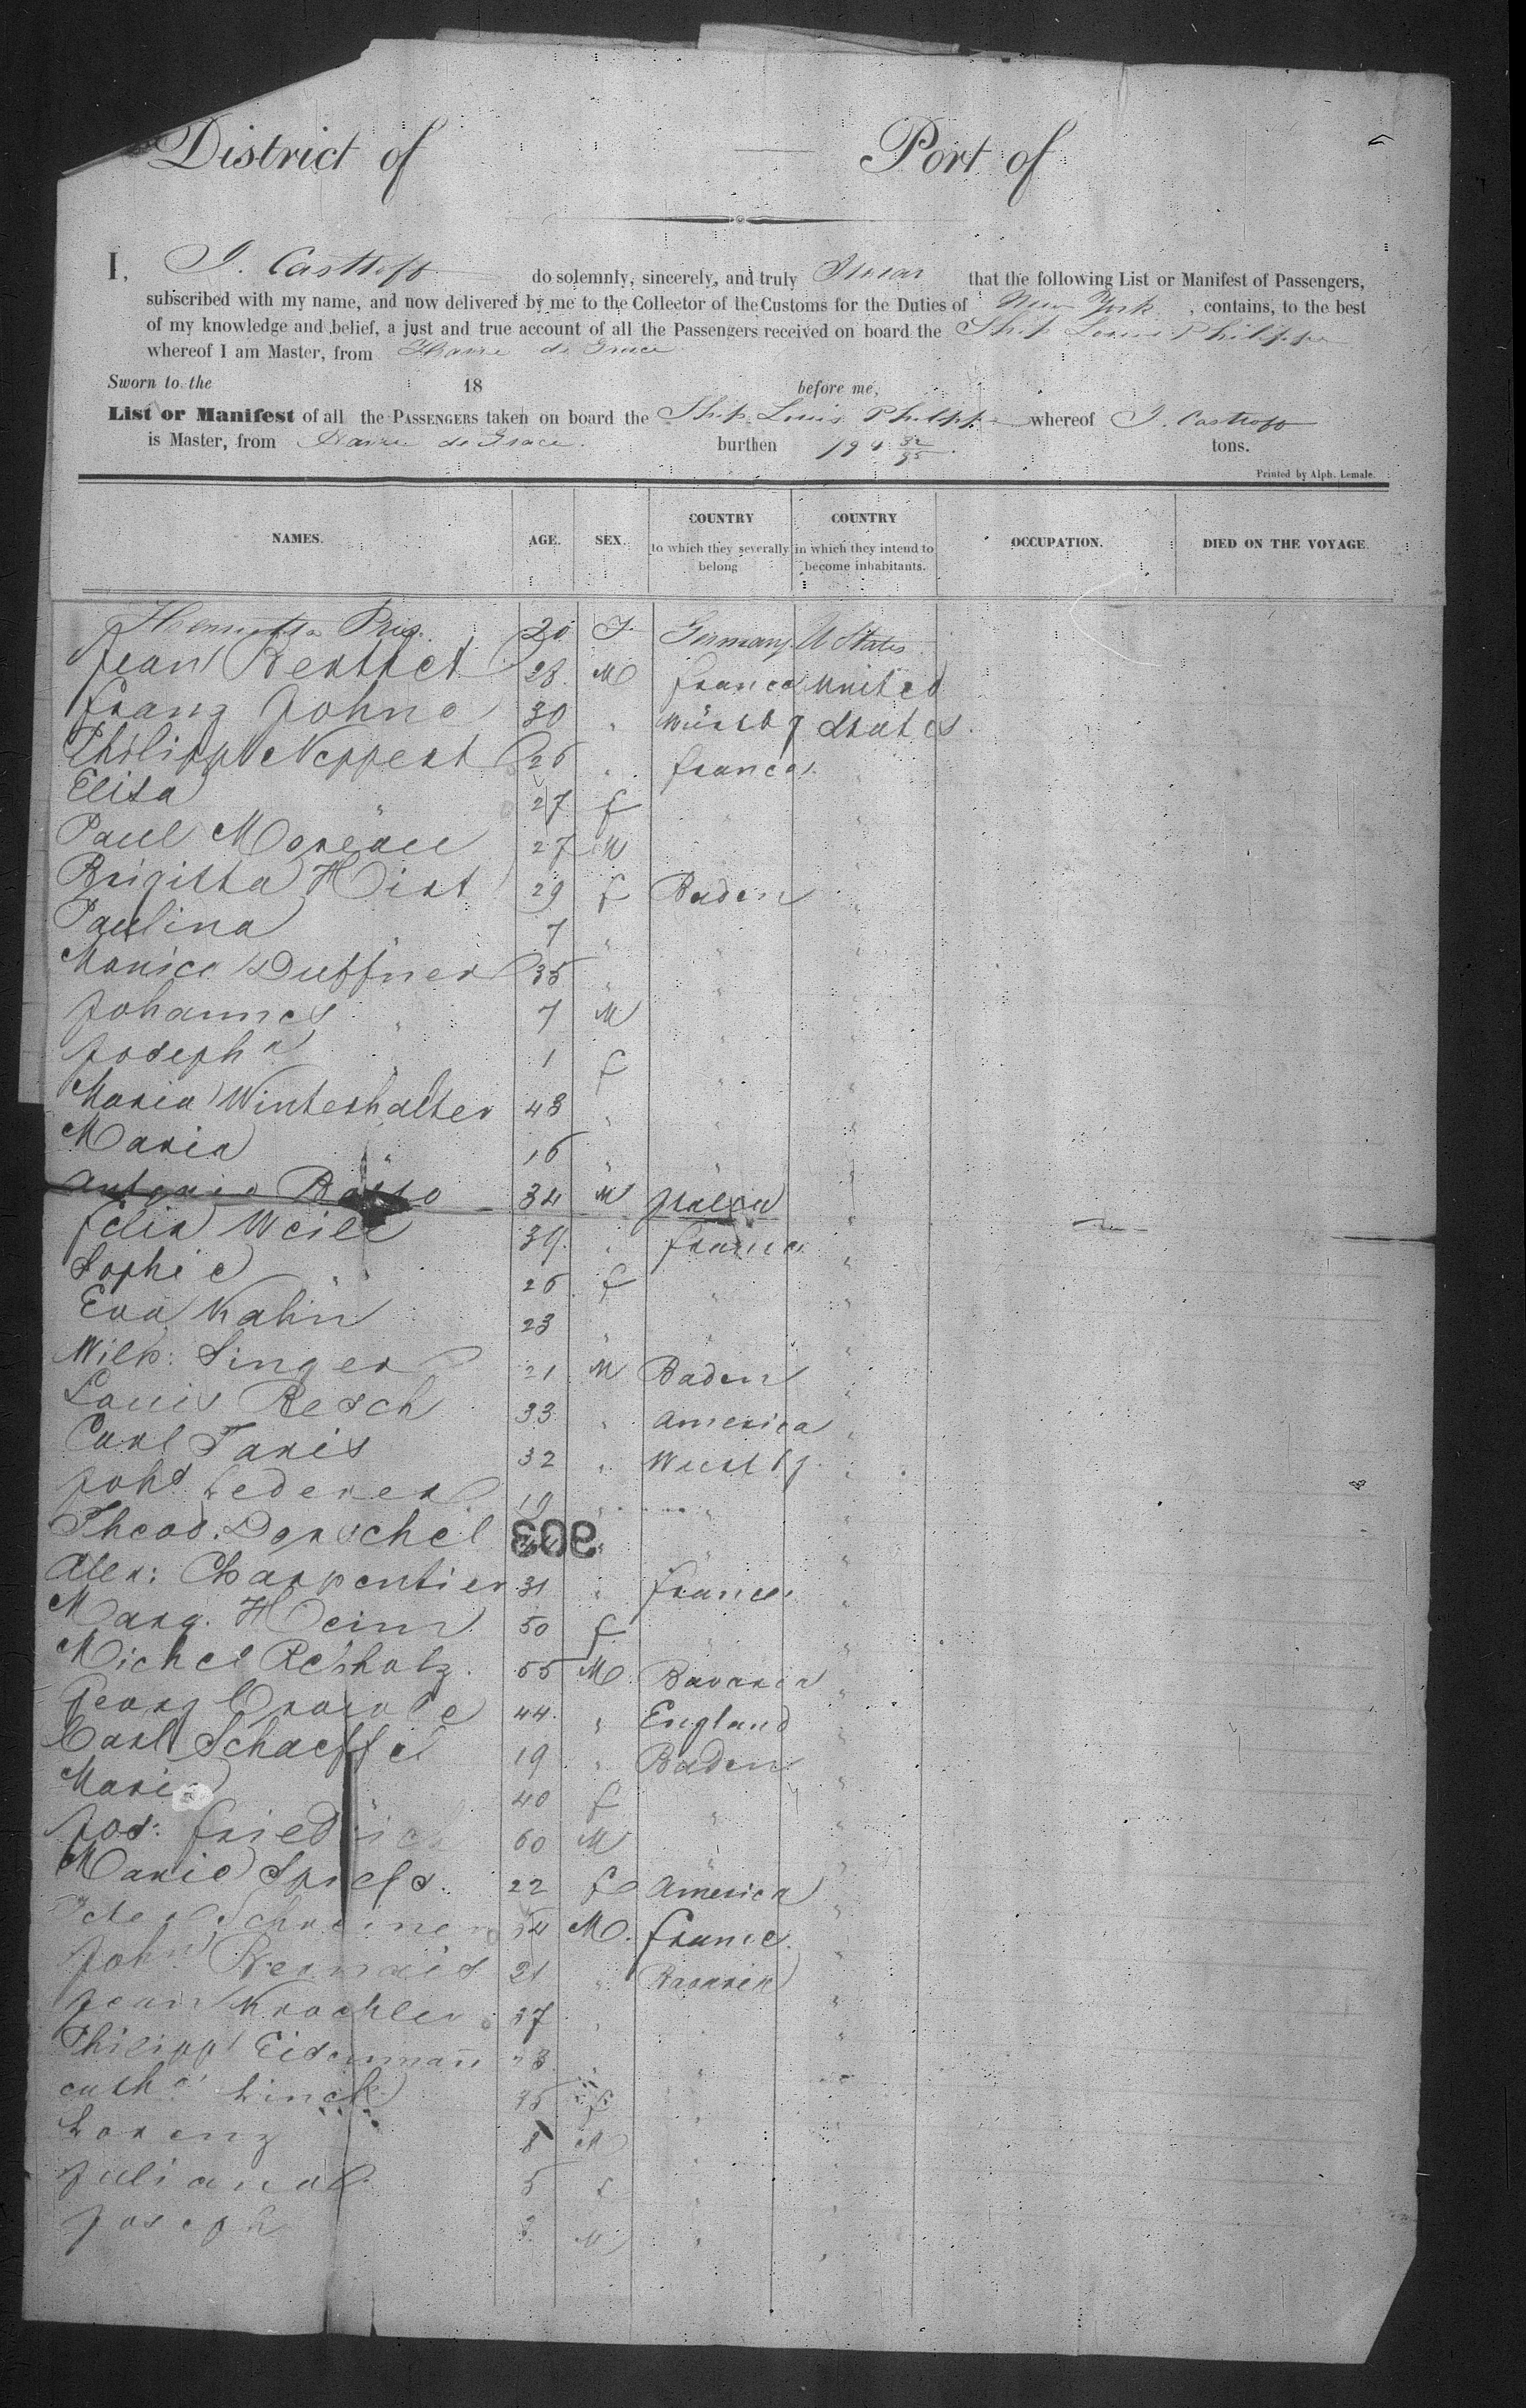 District of Port of
I, J. Casttoff do solemnly, sincerely, and truly Swear that the following List or Manifest of Passengers,
subscribed with my name, and now delivered by me to the Collector of the Customs for the Duties of New York, contains, to the best
of my knowledge and belief, a just and true account of all the Passengers received on board the Ship Louis Philippe
whereof I am Master, from Havre de Grace
Sworn to the 18 before me,
List or Manifest of all the PASSENGERS taken on board the Ship Louis Philippe whereof J. Casttoff
is Master, from Havre de Grace. burthen 794 32/95 tons.
Printed by Alph. Lemale.
NAMES. AGE. SEX. COUNTRY to which they severally belong COUNTRY in which they intend to become inhabitants. OCCUPATION. DIED ON THE VOYAGE.
20 F Germany U States
Jean 28 M France United
Franz Johne 30 " Würtbg States
Philipp Neppert 26 " France "
Elisa " 27 f " "
Paul Moreau 27 M " "
Brigitta Hirt 29 f Baden "
Paulina " 7 " " "
Monica Duffner 35 " " "
Johannes " 7 M " "
Josepha " 1 f " "
Maria Winterhalter 48 " " "
Maria " 16 " " "
34 M Italia "
Felix Weill 39 " France "
Sophie " 26 f " "
Eva Kahn 23 " " "
Wilh: Singer 21 M Baden "
Louis Resch 33 " America "
Carl 32 " Wurtbg. "
Johs Lederer 19 " " "
Theod. Dorschel 203 " " "
Alex: Charpentier 31 " France "
Marg. Heim 50 f " "
Michel Rebholz. 55 M Bavaria "
Georg 44 " England "
Carl Schaeffel 19 " Baden "
Maria " 40 f " "
Jos: Friedrich 60 M " "
Marie Spiess. 22 f America "
54 M. France. "
John 21 " Bavaria "
Jean Kroehler 37 " " "
Philipp Eidenmañ 23 " " "
Catha Linck 35 f " "
Lorenz 8 M " "
Juliana 5 f " "
Joseph M " "